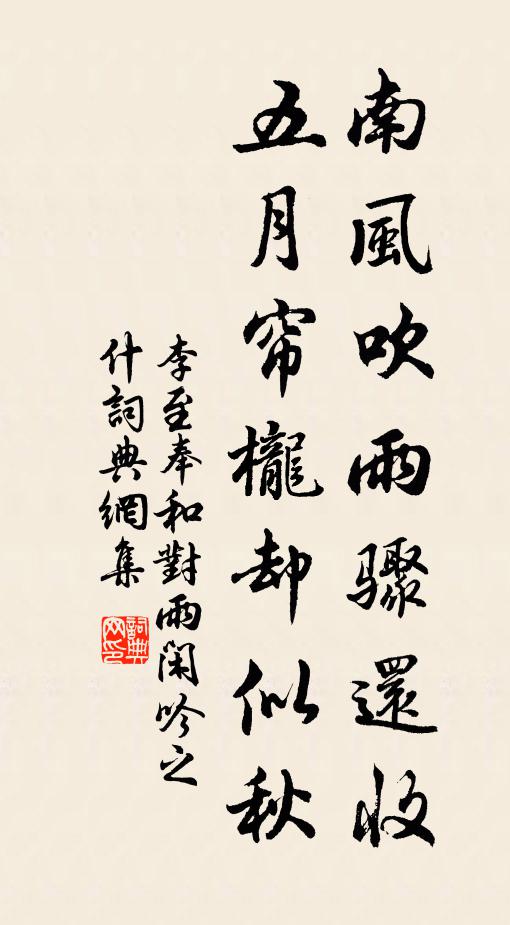 南風吹雨驟還收
五月帘櫳却似秋
李至奉和對雨閑吟之
什詞典網集
詞典网印